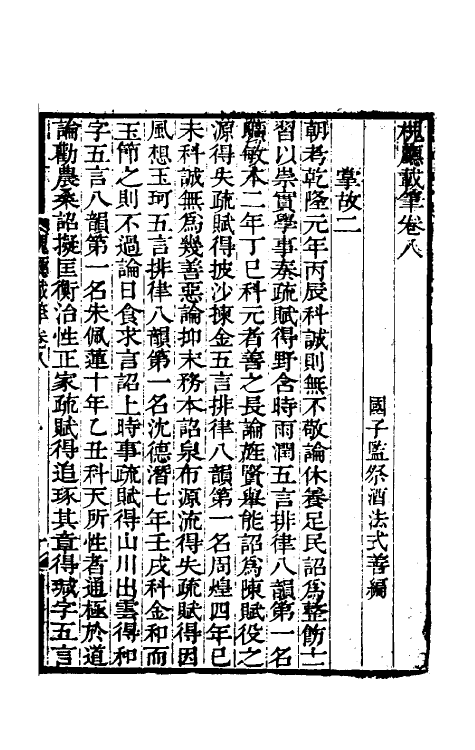 槐廳載筆卷八
國子監祭酒法式善編
掌故二
朝考乾隆元年丙辰科誠則無不敬論休養足民詔爲整飭士
習以崇實學事奏疏賦得野含時雨潤五言排律八韻第一名
曠敏本二年丁巳科元者善之長論旌賢舉能詔爲陳賦役之
源得失疏賦得披沙揀金五言排律八韻第一名周煌四年己
未科誠無爲幾善惡論抑末務本詔泉布源流得失疏賦得因
風想玉珂五言排律八韻第一名沈德潛七年壬戌科金和而
玉節之則不過論日食求言詔上時事疏賦得山川出雲得和
字五言八韻第一名朱佩蓮十年乙丑科天所性者通極於道
論勸農桑詔擬匡衡治性正家疏賦得追琢其章得誠字五言
槐廳載筆 卷八